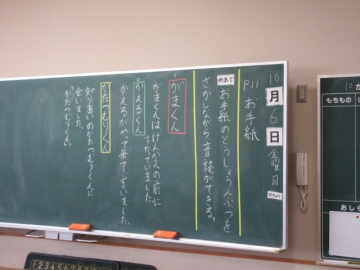 10月6日金曜日
P11 お手紙
めあて お手紙のとうじょう人ぶつを
さがしながら音読ができる。
がまくん
がまくんは、げんかんの前に
すわっていました。
かえるくん
かえるがやって来て、言いました。
かたつむりくん
知りあいのかたつむりくんに
会いました。
「かたつむりくん。
もちもの
おしら
1 2 3 4 5 6 7 8 9 10